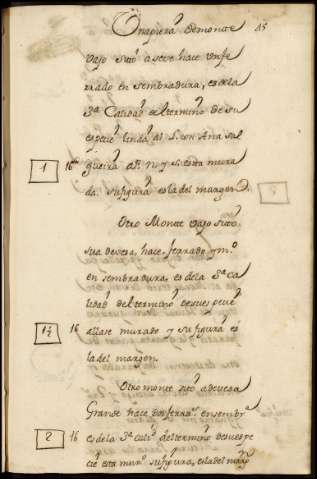 Una pieza de monte
vajo sitto a seve hace un fe
rrado en sembradura, es de la
3ª Calidad del termino de su
especie linda al L. con Ana Sal
1 16 gueira al N. y si esta mura
da. su figura es la del margen.
Otro Monte vajo sitto
sua devesa, hace ferrado y mº
en sembradura, es de la 3ª ca
lidad del termino de su especie
1½ 16 allase murado y su figura es
la del margen.
Otro monte sitto a devesa
Grande hace dos ferraˢ en sembrª
2 16 es de la 3ª calidˢ del termino de su espe
cie esta murº su figura, es la del margⁿ